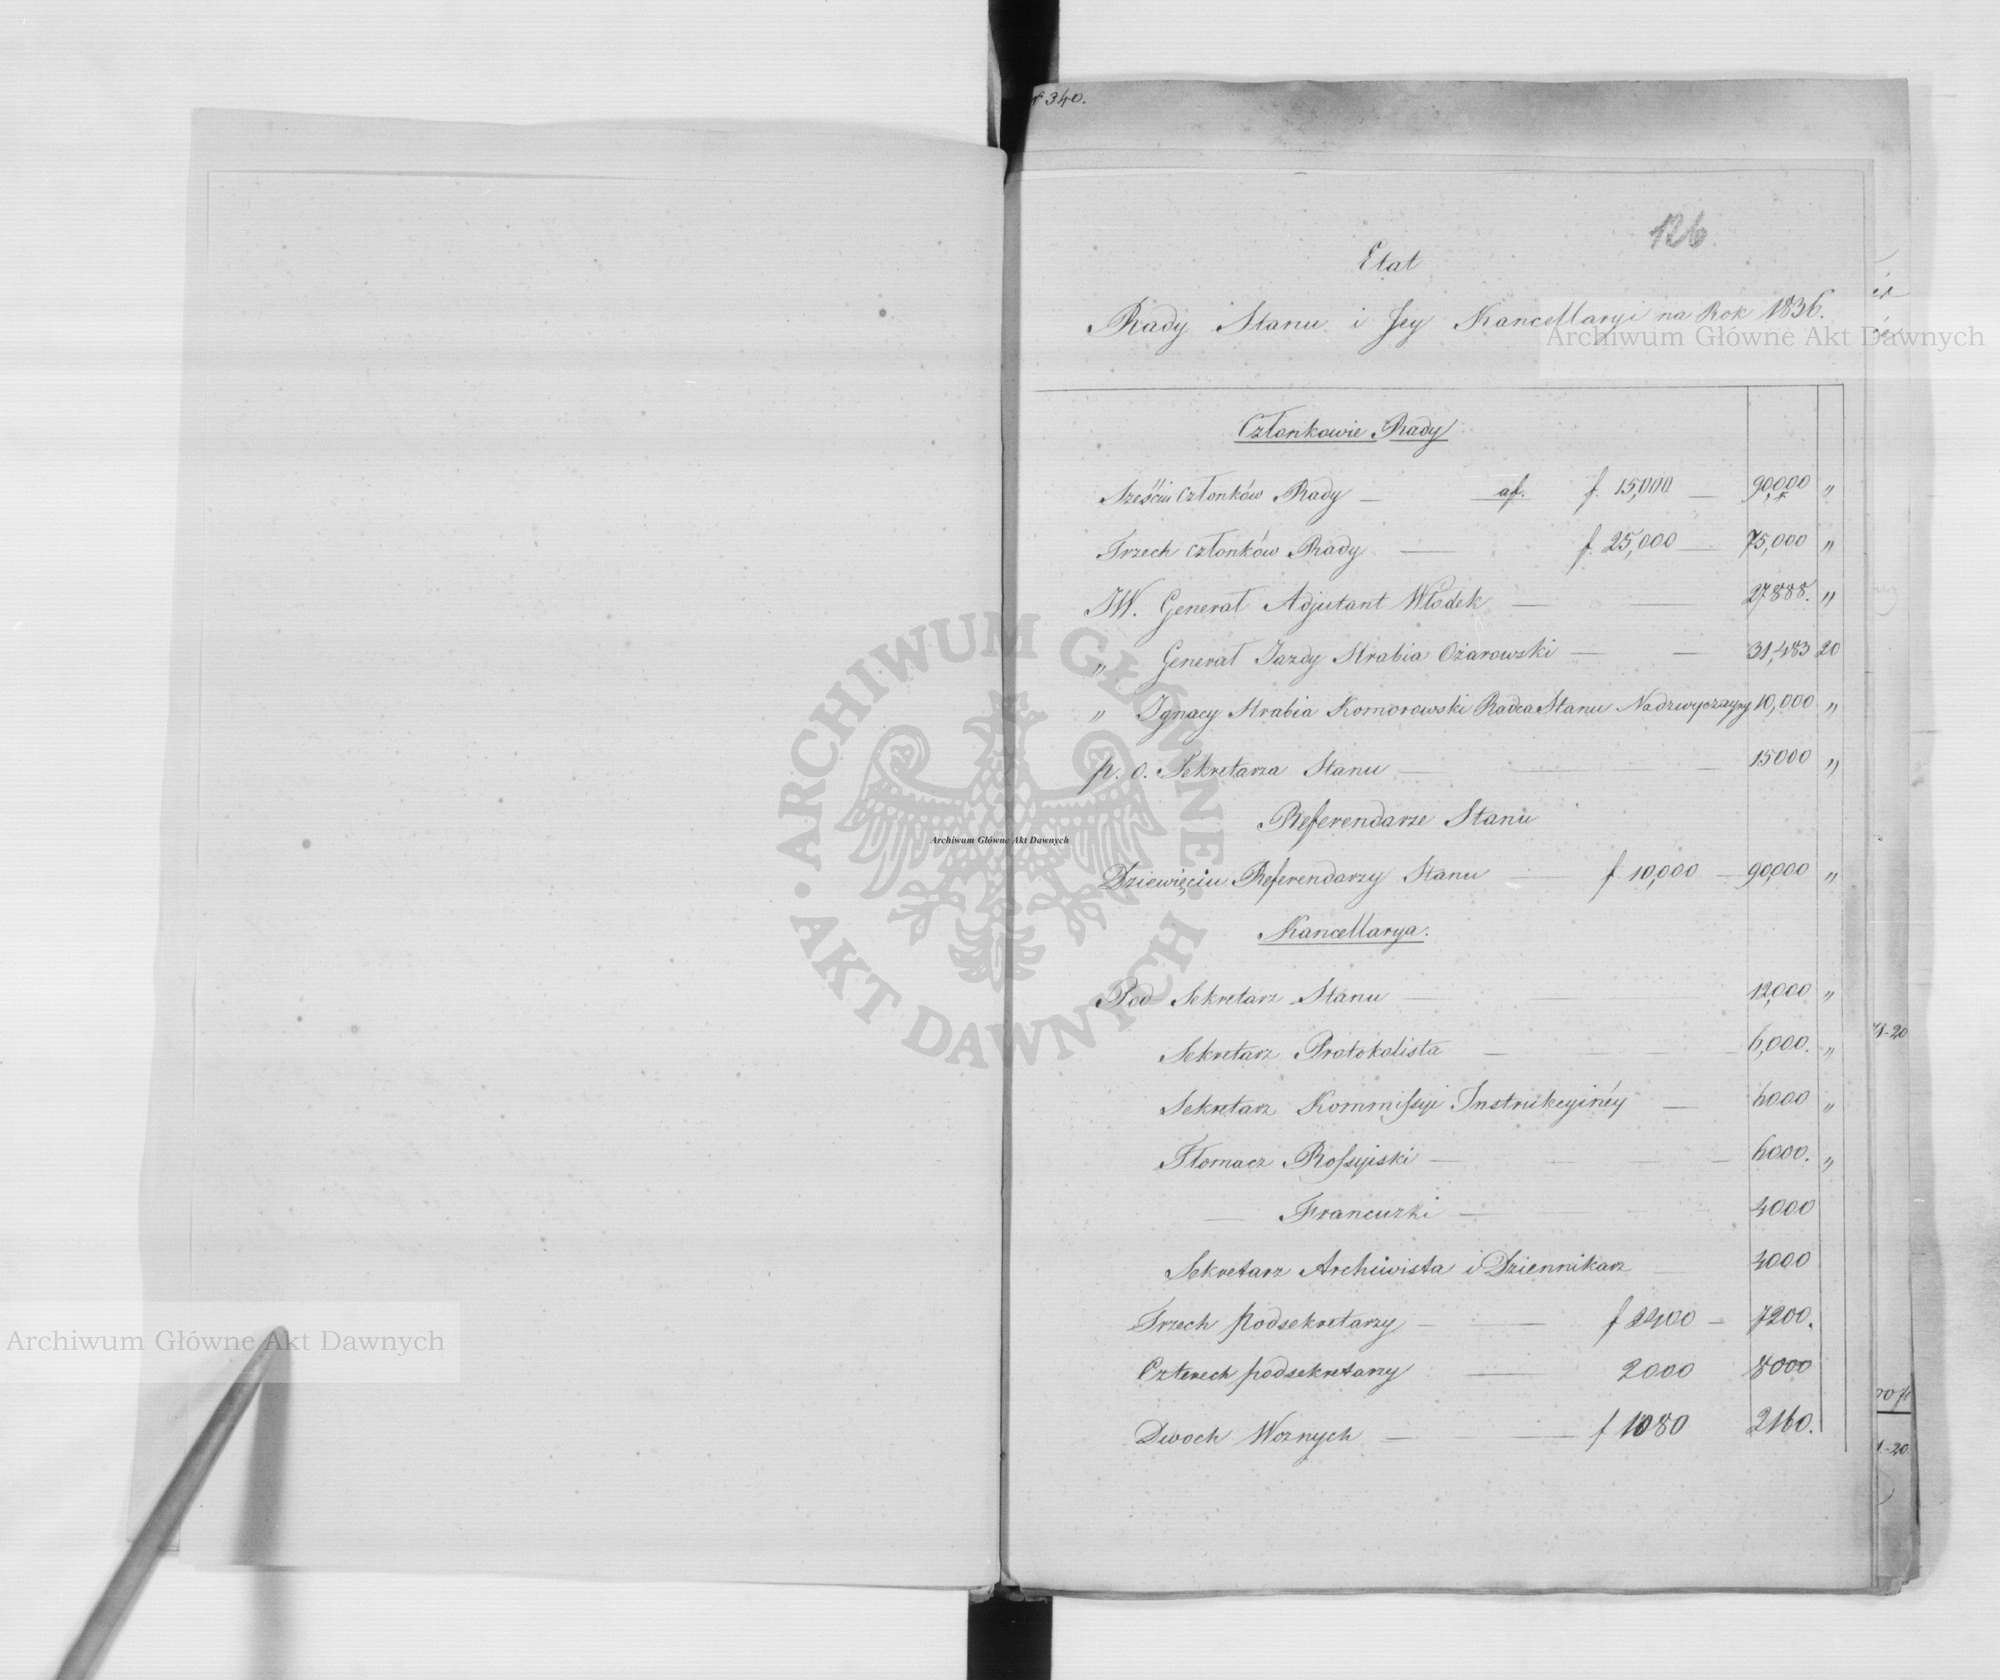 № 340.
126
Etat
Rady Stanu i Jey Kancellaryi na Rok 1836.
Archiwum Główne Akt Dawnych
Członkowie Rady
Sześciu Członków Rady — af. f. 15,000 — 90,000 "
Trzech członków Rady — f. 25,000 — 75,000 "
JW. Generał Adjutant Włodek — — 27888. "
" Generał Jazdy Hrabia Ożarowski — — 31,483 20
" Ignacy Hrabia Komorowski Radca Stanu Nadzwyczayny 10,000 "
p. o. Sekretarza Stanu — — — 15000 "
Referendarze Stanu
Dziewięciu Referendarzy Stanu — f 10,000 — 90,000 "
Kancellarya.
Pod Sekretarz Stanu — 12,000 "
Sekretarz Protokolista — — — 6,000. "
Sekretarz Kommissyi Instrukcyinéy — 6000 "
Tłomacz Rossyiski — — — — 6000. "
— Francuzki — — 4000
Sekretarz Archiwista i Dziennikarz — 4000
Trzech Podsekretarzy — — f 2400 — 7200.
Czterech podsekretarzy — 2000 8000
Dwoch Woznych — — f 1080 2160.
ARCHIWUM GŁÓWNE · AKT DAWNYCH ·
Archiwum Główne Akt Dawnych
Archiwum Główne Akt Dawnych